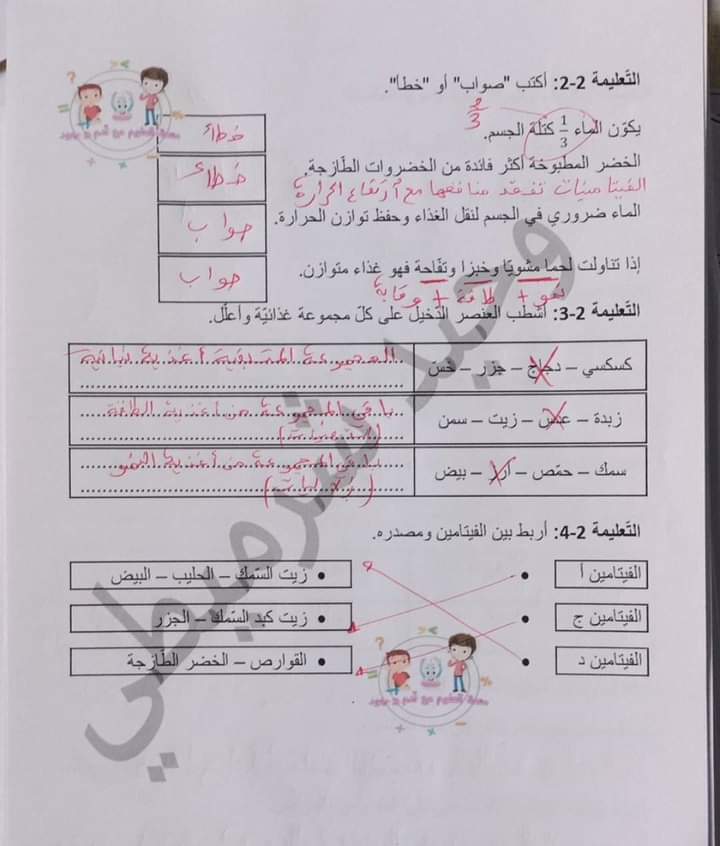 التّعليمة 2-2: أكتب "صواب" أو "خطأ".
2/3
يكوّن الماء 1/3 كتلة الجسم.
خطأ
الخضر المطبوخة أكثر فائدة من الخضروات الطّازجة.
خطأ
الفيتامينات تفقد منافعها مع ارتفاع الحرارة
الماء ضروري في الجسم لنقل الغذاء وحفظ توازن الحرارة.
صواب
إذا تناولت لحما مشويّا وخبزا وتفّاحة فهو غذاء متوازن.
صواب
نمو + طاقة + وقاية
التّعليمة 2-3: أشطب العنصر الدّخيل على كلّ مجموعة غذائيّة وأعلّل.
كسكسي – دجاج – جزر – خسّ
المجموعة المتبقية أغذية نباتية
زبدة – عدس – زيت – سمن
باقي المجموعة من أغذية الطاقة
سمك – حمّص – أرز – بيض
باقي المجموعة من أغذية النمو
التّعليمة 2-4: أربط بين الفيتامين ومصدره.
الفيتامين أ
زيت السّمك – الحليب – البيض
الفيتامين ج
زيت كبد السّمك – الجزر
الفيتامين د
القوارص – الخضر الطّازجة
وحيد شرميطي